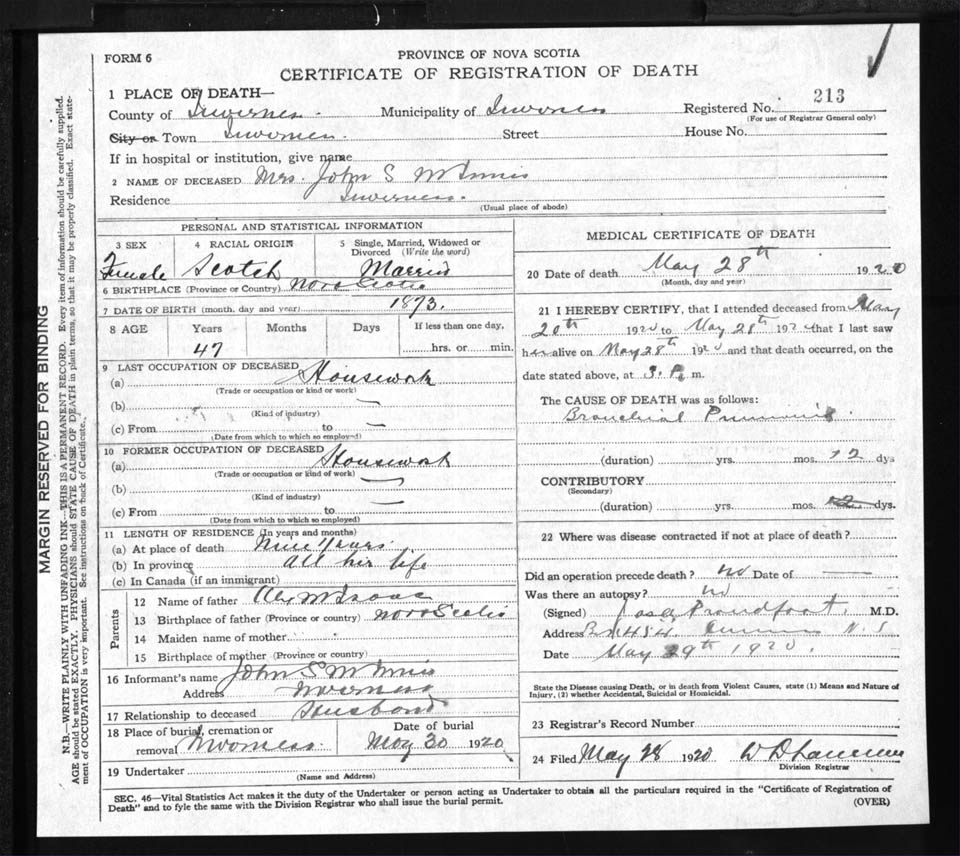 FORM 6
PROVINCE OF NOVA SCOTIA
CERTIFICATE OF REGISTRATION OF DEATH
1 PLACE OF DEATH—
County of Inverness Municipality of Inverness Registered No. 213
(For use of Registrar General only)
City or Town Inverness Street House No.
If in hospital or institution, give name
2 NAME OF DECEASED Mrs. John S McInnis
Residence Inverness.
(Usual place of abode)
PERSONAL AND STATISTICAL INFORMATION
3 SEX
Female
4 RACIAL ORIGIN
Scotch
5 Single, Married, Widowed or Divorced (Write the word)
Married
6 BIRTHPLACE (Province or Country) Nova Scotia
7 DATE OF BIRTH (month, day and year) 1873.
8 AGE Years Months Days If less than one day,
47 hrs. or min.
9 LAST OCCUPATION OF DECEASED
(a) Housework
(Trade or occupation or kind or work)
(b) —
(Kind of industry)
(c) From to —
(Date from which to which so employed)
10 FORMER OCCUPATION OF DECEASED
(a) Housework
(Trade or occupation or kind of work)
(b) —
(Kind of industry)
(c) From to —
(Date from which to which so employed)
11 LENGTH OF RESIDENCE (In years and months)
(a) At place of death Nine Years.
(b) In province All his life
(c) In Canada (if an immigrant)
Parents
12 Name of father Alex McIsaac
13 Birthplace of father (Province or country) Nova Scotia
14 Maiden name of mother
15 Birthplace of mother (Province or country)
16 Informant's name John S McInnis
Address Inverness
17 Relationship to deceased Husband
18 Place of burial, cremation or removal Inverness
Date of burial
May 30 1920
19 Undertaker
(Name and Address)
MEDICAL CERTIFICATE OF DEATH
20 Date of death May 28th 1920
(Month, day and year)
21 I HEREBY CERTIFY, that I attended deceased from May
20th 1920 to May 28th 1920 that I last saw
her alive on May 28th 1920 and that death occurred, on the
date stated above, at 3. P. m.
The CAUSE OF DEATH was as follows:
Bronchial Pneumonia.
(duration) yrs. mos. 12 dys
CONTRIBUTORY
(Secondary)
(duration) yrs. mos. 12 dys.
22 Where was disease contracted if not at place of death?
Did an operation precede death? no Date of —
Was there an autopsy? no
(Signed) Proudfoot M.D.
Address N.S
Date May 29th 1920.
State the Disease causing Death, or in death from Violent Causes, state (1) Means and Nature of
Injury, (2) whether Accidental, Suicidal or Homicidal.
23 Registrar's Record Number
24 Filed May 28 1920
Division Registrar
SEC. 46—Vital Statistics Act makes it the duty of the Undertaker or person acting as Undertaker to obtain all the particulars required in the "Certificate of Registration of
Death" and to fyle the same with the Division Registrar who shall issue the burial permit.
(OVER)
MARGIN RESERVED FOR BINDING
N.B.—WRITE PLAINLY WITH UNFADING INK—THIS IS A PERMANENT RECORD. Every item of information should be carefully supplied.
AGE should be stated EXACTLY. PHYSICIANS should STATE CAUSE OF DEATH in plain terms, so that it may be properly classified. Exact state-
ment of OCCUPATION is very important. See instructions on back of Certificate.